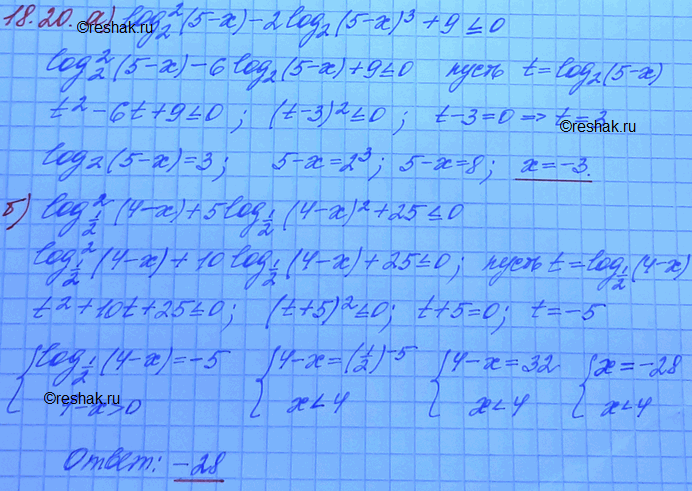 18.20. а) log₂²(5-x)-2log₂(5-x)³+9≤0
©reshak.ru
log₂²(5-x)-6log₂(5-x)+9≤0 пусть t=log₂(5-x)
t²-6t+9≤0; (t-3)²≤0; t-3=0=>t=3
©reshak.ru
log₂(5-x)=3; 5-x=2³; 5-x=8; x=-3.
б) log²_{1/2}(4-x)+5log_{1/2}(4-x)²+25≤0
log²_{1/2}(4-x)+10log_{1/2}(4-x)+25≤0; пусть t=log_{1/2}(4-x)
t²+10t+25≤0; (t+5)²≤0; t+5=0; t=-5
{log_{1/2}(4-x)=-5 {4-x=(1/2)^{-5} {4-x=32 {x=-28
4-x>0 x<4 x<4 x<4
©reshak.ru
Ответ: -28